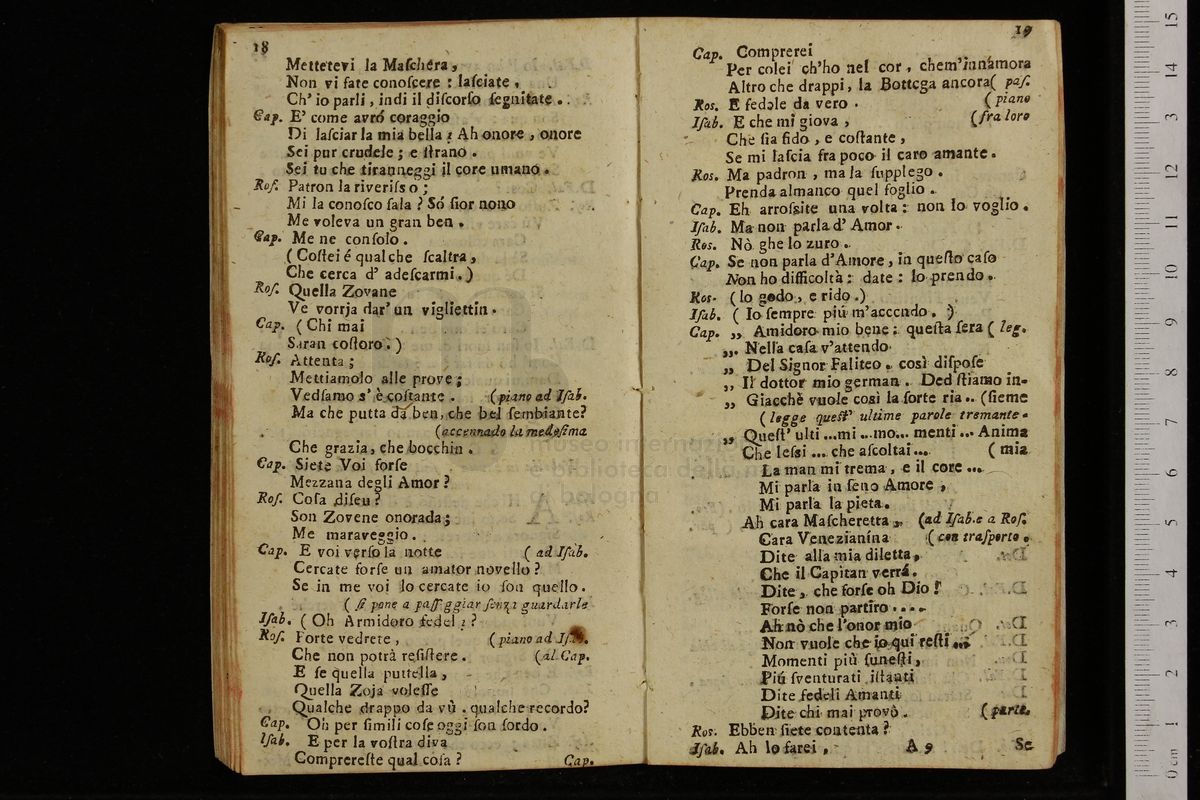 18
Mettetevi la Maſchéra,
Non vi fate conoſcere : laſciate,
Ch' io parli, indi il diſcorſo ſegnitate.
Cap. E' come avró coraggio
Di laſciar la mia bella? Ah onore, onore
Sei pur crudele; e ſtrano.
Sei tu che tiranneggi il core umano.
Roſ. Patron la riveriſso;
Mi la conoſco ſala? Só ſior nono
Me voleva un gran ben.
Cap. Me ne conſolo.
(Coſtei é qualche ſcaltra,
Che cerca d' adeſcarmi.)
Roſ. Quella Zovane
Ve vorrja dar' un vigliettin.
Cap. (Chi mai
Saran coſtoro.)
Roſ. Attenta;
Mettiamolo alle prove;
Vedſamo s' è coſtante. (piano ad Iſab.
Ma che putta da ben, che bel ſembiante?
(accennado la medeſima
Che grazia, che bocchin.
Cap. Siete Voi forſe
Mezzana degli Amor?
Roſ. Coſa diſeu?
Son Zovene onorada;
Me maraveggio.
Cap. E voi verſo la notte (ad Iſab.
Cercate forſe un amator novello?
Se in me voi lo cercate io ſon quello.
(ſi pone a paſſeggiar ſenza guardarle
Iſab. (Oh Armidoro fedel:?
Roſ. Forte vedrete, (piano ad Iſab.
Che non potrà reſiſtere. (al Cap.
E ſe quella puttella,
Quella Zoja voleſſe
Qualche drappo da vù. qualche recordo?
Cap. Oh per ſimili coſe oggi ſon ſordo.
Iſab. E per la voſtra diva
Comprereſte qual coſa?
Cap.
19
Cap. Comprerei
Per colei ch'ho nel cor, chem'innamora
Altro che drappi, la Bottega ancora( paſ.
Ros. E fedele da vero. (piano
Iſab. E che mi giova, (fra loro
Che ſia fido, e coſtante,
Se mi laſcia fra poco il caro amante.
Ros. Ma padron, ma la ſupplego.
Prenda almanco quel foglio.
Cap. Eh arroſsite una volta: non lo voglio.
Iſab. Ma non parla d' Amor.
Ros. Nò ghe lo zuro.
Cap. Se non parla d'Amore, in queſto caſo
Non ho difficoltà: date: lo prendo.
Ros. (Io godo, e rido.)
Iſab. ( Io ſempre piú m'accendo.)
Cap. „ Amidoro mio bene: queſta ſera ( leg.
„. Nella caſa v'attendo
„ Del Signor Faliteo. così diſpoſe
„ Il dottor mio german. Ded ſtiamo in-
„ Giacchè vuole così la ſorte ria.. (ſieme
(legge queſt' ultime parole tremante.
„ Queſt' ulti ...mi ...mo... menti ... Anima
Che leſsi ... che aſcoltai ... (mia
La man mi trema, e il core ...
Mi parla in ſeno Amore,
Mi parla la pieta.
Ah cara Maſcheretta „ (ad Iſab.e a Roſ.
Cara Venezianína (con traſporto.
Dite alla mia diletta,
Che il Capitan verrá.
Dite, che forſe oh Dio!
Forſe non partiro....
Ah nò che l'onor mio
Non vuole che io qui reſti ...
Momenti più funeſti,
Piú ſventurati iſtanti
Dite fedeli Amanti
Dite chi mai provò. (parte.
Ros. Ebben ſiete contenta?
Iſab. Ah lo farei,
A 9
Se